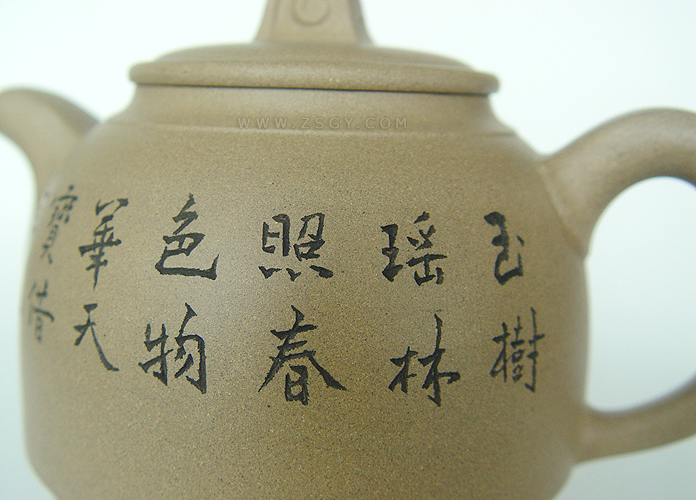 玉樹
瑶林
照春
色物
華天
寳
WWW.ZSGY.COM